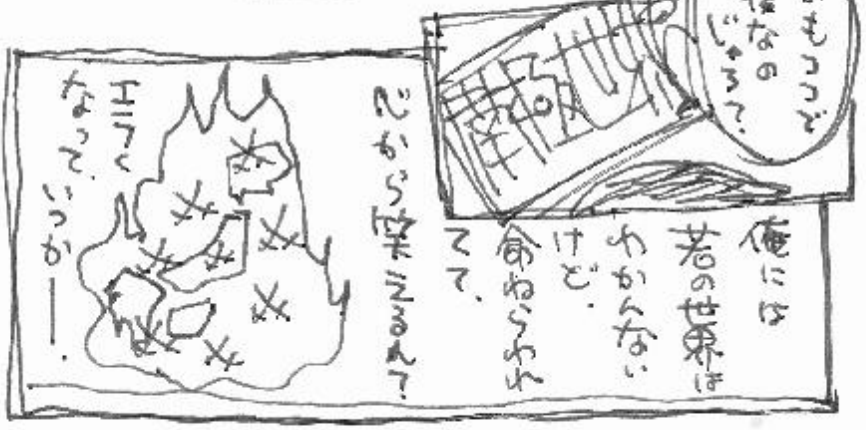 もココで
なの
じゃろて。
俺には
若の世界は
わかんない
けど、
命ねらわれ
てて、
心から笑えるん？
エラく
なって、
いつか――。